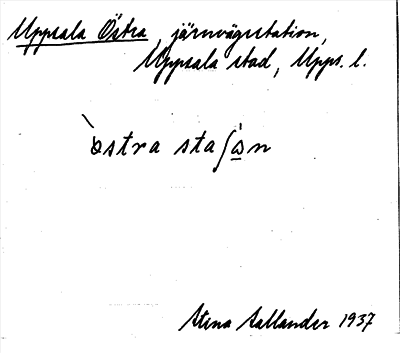 Uppsala Östra, järnvägsstation,
Uppsala stad, Upps. l.
östra staʃɷn
Stina Sallander 1937